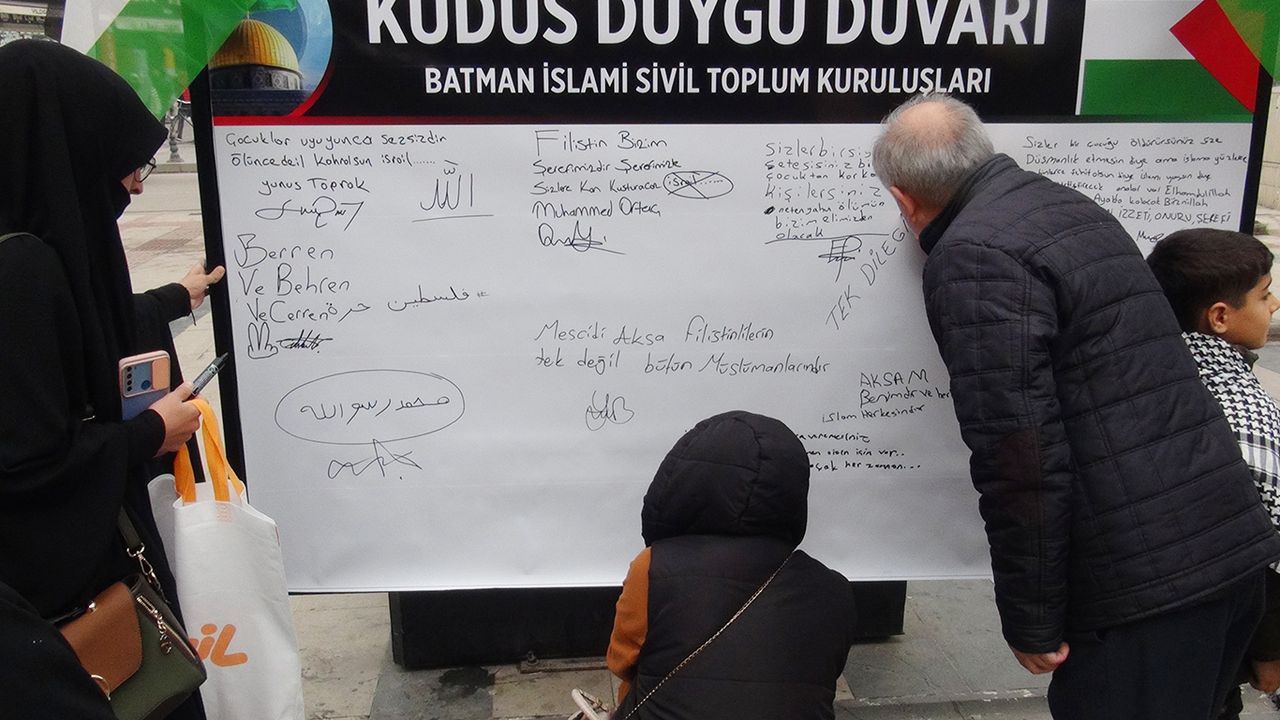 KUDÜS DUYGU DUVARI
BATMAN İSLAMİ SİVİL TOPLUM KURULUŞLARI
Çocuklar uyuyunca sessizdir
ölünce değil kahrolsun israil......
yunus Toprak
الله
Berren
Ve Behren
Ve Cerren
فلسطين حرة
محمد رسو الله
Filistin Bizim
Şerefimizdir Şerefimizle
Sizlere Kan Kusturacaz israil......
Muhammed
Mescidi Aksa Filistinlilerin
tek değil bütün Müslümanlarındır
Sizler bir
çocuktan korkan
kişilersiniz
ölümünü
bizim elimizden
olacak
TEK DİLEĞİ
AKSAM
Benimdir ve her
islam Herkesindir
için var..
her zaman...
Sizler bir çocuğu öldürürsünüz size
Düşmanlık etmesin diye ama islama yüzlerce
analar var Elhamdulillah
İZZETİ, ONURU, ŞEREFİ